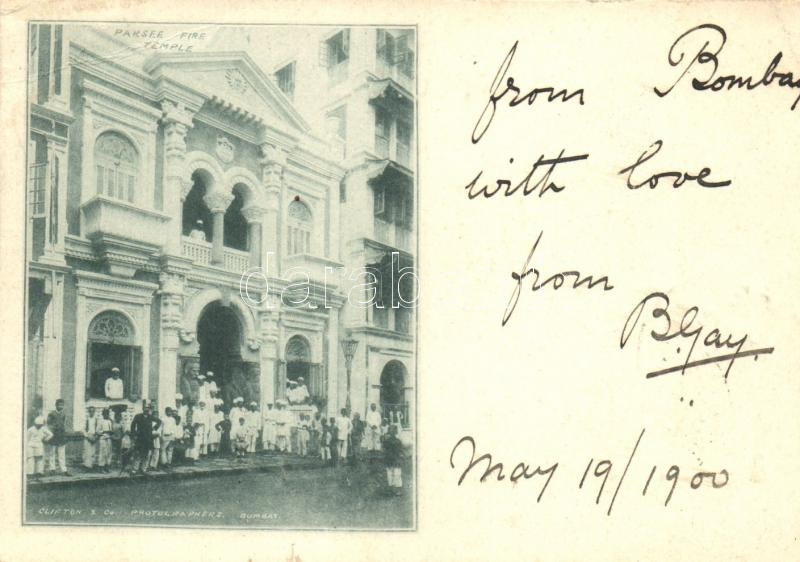 PARSEE FIRE
TEMPLE
from Bombay
with love
from
B Gay
May 19/1900
darabanth
CLIFTON & Co. PHOTOGRAPHERS. BOMBAY.